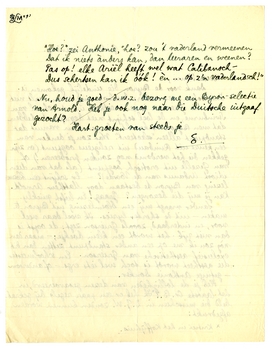 "Hoe?" zei Anthonie, "hoe? zou 't vaderland vermeenen
Dat ik niets anders kan, dan leeraren en weenen?
Pas op! elke Ariël heeft wel wat Caliban
Dus schertsen kan ik óók! én ... op z'n vaderlandsch!"
Nu, houd je goed – d.w.z. bezorg me een Byron-selectie
van Arnold. Heb je ook nog naar die Duitsche uitgaaf
gezocht?
Hart. groeten van steeds je
E.